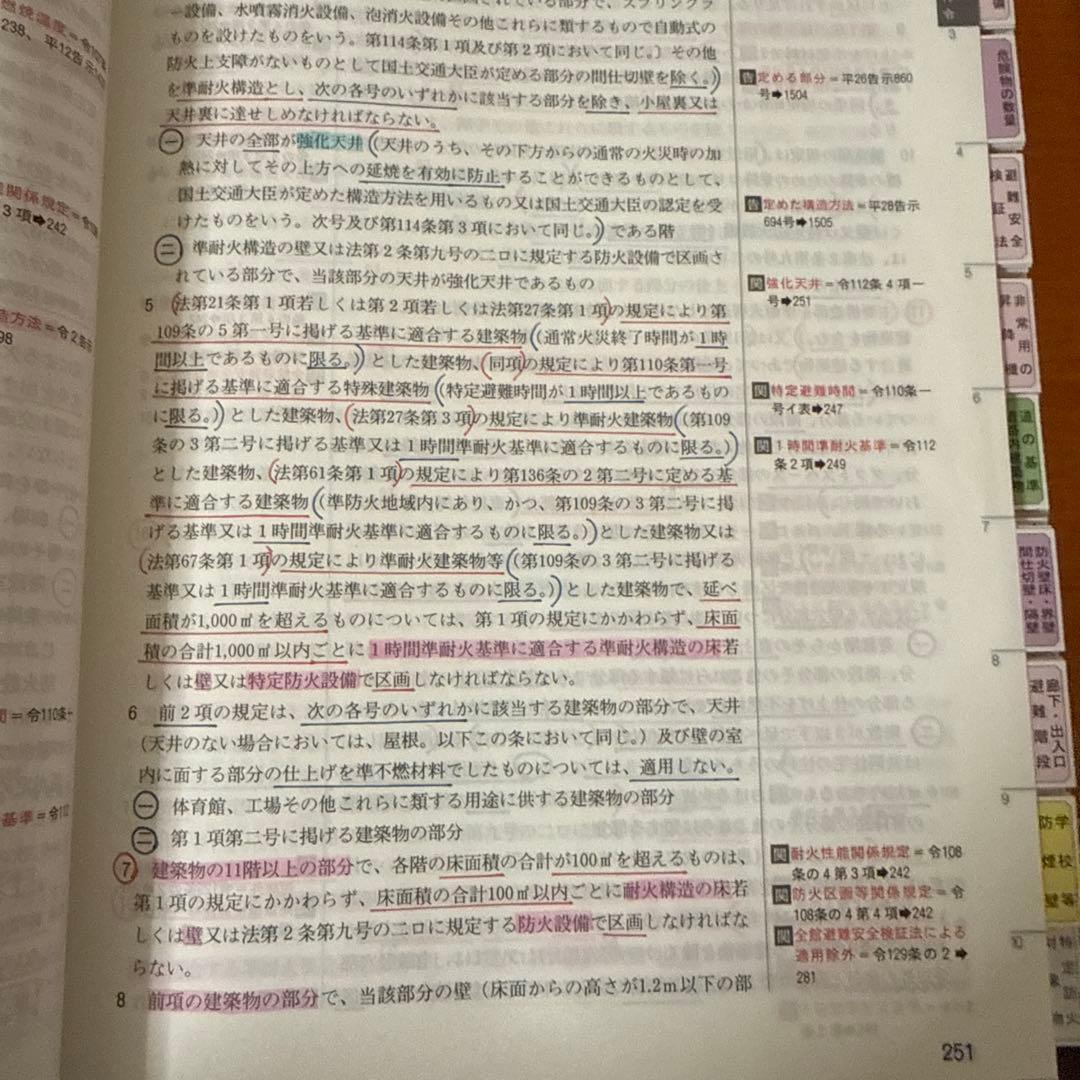 ー設備、水噴霧消火設備、泡消火設備その他これらに類するもので自動式の
ものを設けたものをいう。第114条第1項及び第2項において同じ。)その他
防火上支障がないものとして国土交通大臣が定める部分の間仕切壁を除く。)
を準耐火構造とし、次の各号のいずれかに該当する部分を除き、小屋裏又は
天井裏に達せしめなければならない。
一 天井の全部が強化天井(天井のうち、その下方からの通常の火災時の加
熱に対してその上方への延焼を有効に防止することができるものとして、
国土交通大臣が定めた構造方法を用いるもの又は国土交通大臣の認定を受
けたものをいう。次号及び第114条第3項において同じ。)である階
二 準耐火構造の壁又は法第2条第九号の二ロに規定する防火設備で区画さ
れている部分で、当該部分の天井が強化天井であるもの
5 法第21条第1項若しくは第2項若しくは法第27条第1項の規定により第
109条の5第一号に掲げる基準に適合する建築物(通常火災終了時間が1時
間以上であるものに限る。)とした建築物、同項の規定により第110条第一号
に掲げる基準に適合する特殊建築物(特定避難時間が1時間以上であるもの
に限る。)とした建築物、法第27条第3項の規定により準耐火建築物(第109
条の3第二号に掲げる基準又は1時間準耐火基準に適合するものに限る。)
とした建築物、法第61条第1項の規定により第136条の2第二号に定める基
準に適合する建築物(準防火地域内にあり、かつ、第109条の3第二号に掲
げる基準又は1時間準耐火基準に適合するものに限る。)とした建築物又は
法第67条第1項の規定により準耐火建築物等(第109条の3第二号に掲げる
基準又は1時間準耐火基準に適合するものに限る。)とした建築物で、延べ
面積が1,000㎡を超えるものについては、第1項の規定にかかわらず、床面
積の合計1,000㎡以内ごとに1時間準耐火基準に適合する準耐火構造の床若
しくは壁又は特定防火設備で区画しなければならない。
6 前2項の規定は、次の各号のいずれかに該当する建築物の部分で、天井
(天井のない場合においては、屋根。以下この条において同じ。)及び壁の室
内に面する部分の仕上げを準不燃材料でしたものについては、適用しない。
一 体育館、工場その他これらに類する用途に供する建築物の部分
二 第1項第二号に掲げる建築物の部分
7 建築物の11階以上の部分で、各階の床面積の合計が100㎡を超えるものは、
第1項の規定にかかわらず、床面積の合計100㎡以内ごとに耐火構造の床若
しくは壁又は法第2条第九号の二ロに規定する防火設備で区画しなければな
らない。
8 前項の建築物の部分で、当該部分の壁(床面からの高さが1.2m以下の部
告定める部分=平26告示860
号➡1504
告定めた構造方法=平28告示
694号➡1505
関強化天井=令112条4項一
号➡251
関特定避難時間=令110条一
号イ表➡247
関1時間準耐火基準=令112
条2項➡249
関耐火性能関係規定=令108
条の4第3項➡242
関防火区画等関係規定=令
108条の4第4項➡242
関全館避難安全検証法による
適用除外=令129条の2➡
281
251
燃焼温度=令10
238、平12告示14
関係規定=令
3項➡242
造方法=令2告示
98
間=令110条一
基準=令112
3
危険物の数量
4
避難安全
検証法
5
非常用の
昇降機
6
道の基準
7
防火壁床・界壁
間仕切壁・隔壁
8
廊下・出入口
避難階段
9
防
学校
煙
等
10